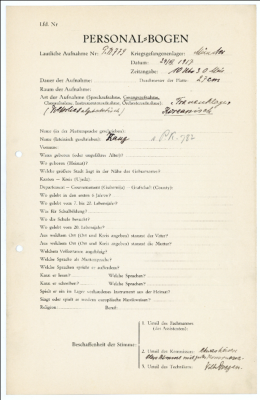 Lfd. Nr
PERSONAL-BOGEN
Lautliche Aufnahme Nr.: Kriegsgefangenenlager: München
Datum:
Zeitangabe: 10 Uhr 30 Min
Dauer der Aufnahme: Durchmesser der Platte: 27 cm
Raum der Aufnahme:
Art der Aufnahme (Sprechaufnahme, Gesangsaufnahme, Choraufnahme, Instrumentenaufnahme, Orchesteraufnahme):
Koreanisch
Name (in der Muttersprache geschrieben):
Name (lateinisch geschrieben): Kang PK-782
Vorname:
Wann geboren (oder ungefähres Alter)?
Wo geboren (Heimat)?
Welche größere Stadt liegt in der Nähe des Geburtsortes?
Kanton – Kreis (Ujezd):
Departement – Gouvernement (Gubernija) – Grafschaft (County):
Wo gelebt in den ersten 6 Jahren?
Wo gelebt vom 7. bis 20. Lebensjahr?
Was für Schulbildung?
Wo die Schule besucht?
Wo gelebt vom 20. Lebensjahr?
Aus welchem Ort (Ort und Kreis angeben) stammt der Vater?
Aus welchem Ort (Ort und Kreis angeben) stammt die Mutter?
Welchem Volksstamm angehörig?
Welche Sprache als Muttersprache?
Welche Sprachen spricht er außerdem?
Kann er lesen? Welche Sprachen?
Kann er schreiben? Welche Sprachen?
Spielt er ein im Lager vorhandenes Instrument aus der Heimat?
Singt oder spielt er modern europäische Musikweisen?
Religion: Beruf:
Beschaffenheit der Stimme:
1. Urteil des Fachmannes
(des Assistenten):
2. Urteil des Kommissars:
3. Urteil des Technikers: